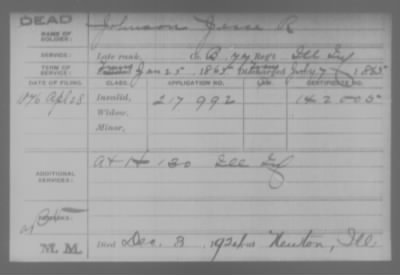 DEAD
NAME OF SOLDIER: Johnson Jesse R
SERVICE: Late rank, Co. B, 77 Reg't Ill Inf
TERM OF SERVICE: Jan 25, 1865 Discharged July 7, 1865
DATE OF FILING. CLASS. APPLICATION NO. LAW. CERTIFICATE NO.
1876 Apl 28 Invalid, 217 992 142 005
Widow,
Minor,
ADDITIONAL SERVICES: 130 Ill Inf
REMARKS:
M. M. Died Dec. 3, 192 at Newton, Ill.